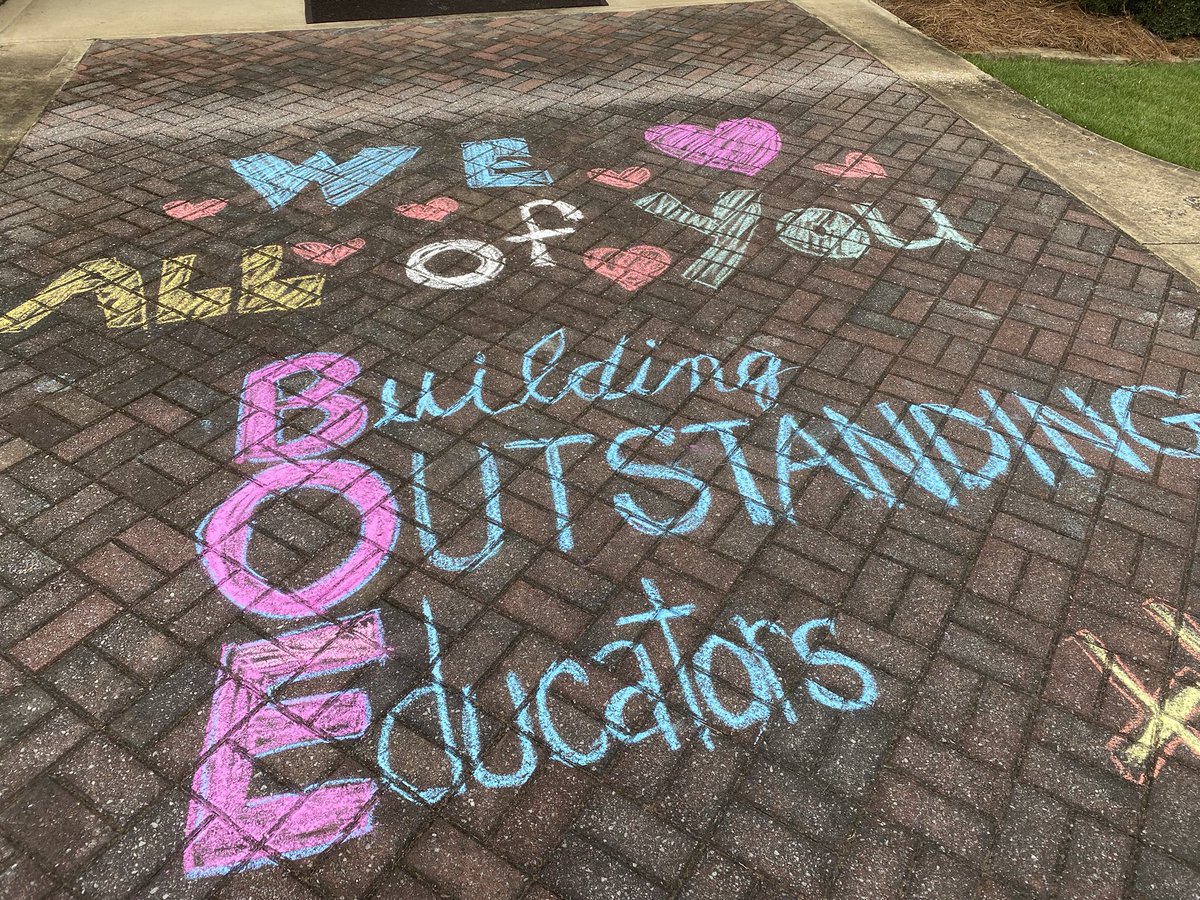 WE
ALL of You
Building
OUTSTANDING
Educators